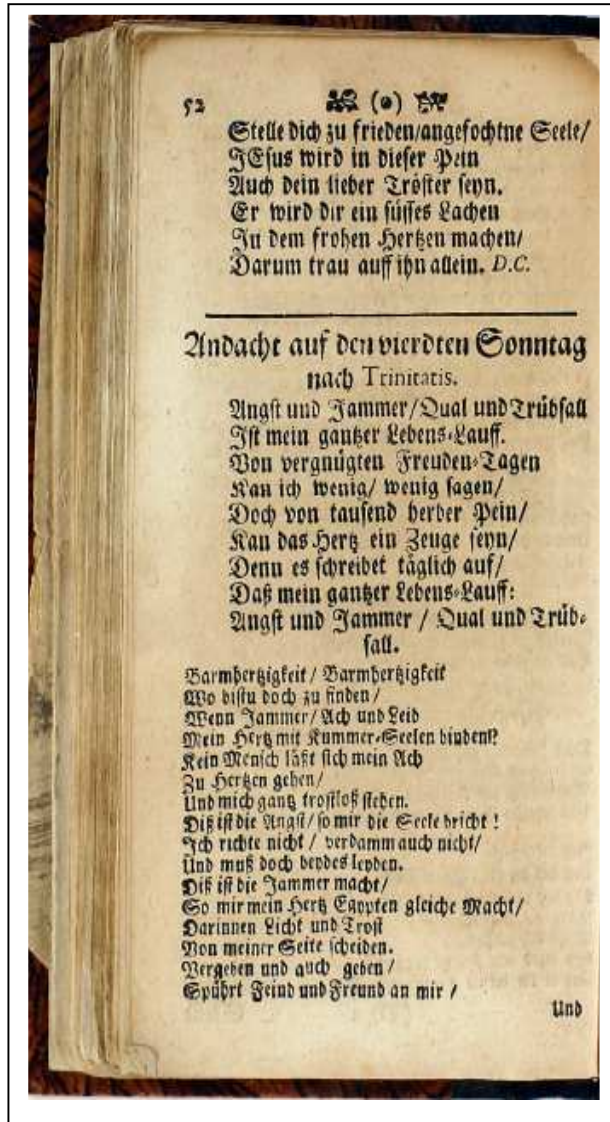 52 (o)
Stelle dich zu frieden/angefochtne Seele/
JEsus wird in dieser Pein
Auch dein lieber Tröster seyn.
Er wird dir ein süsses Lachen
In dem frohen Hertzen machen/
Darum trau auff ihn allein. D.C.
Andacht auf den vierdten Sonntag
nach Trinitatis.
Angst und Jammer/Qual und Trübsall
Ist mein gantzer Lebens-Lauff.
Von vergnügten Freuden-Tagen
Kan ich wenig/ wenig sagen/
Doch von tausend herber Pein/
Kan das Hertz ein Zeuge seyn/
Denn es schreibet täglich auf/
Daß mein gantzer Lebens-Lauff:
Angst und Jammer / Qual und Trüb-
sall.
Barmhertzigkeit/ Barmhertzigkeit
Wo bistu doch zu finden/
Wenn Jammer/ Ach und Leid
Mein Hertz mit Kummer-Seelen binden!?
Kein Mensch läßt sich mein Ach
Zu Hertzen gehen/
Und mich gantz trostloß stehen.
Diß ist die Angst/ so mir die Seele bricht!
Ich richte nicht / verdamm auch nicht/
Und muß doch beydes leyden.
Diß ist die Jammer macht/
So mir mein Hertz Egypten gleiche Macht/
Darinnen Licht und Trost
Von meiner Seite scheiden.
Vergeben und auch geben/
Spührt Feind und Freund an mir /
Und